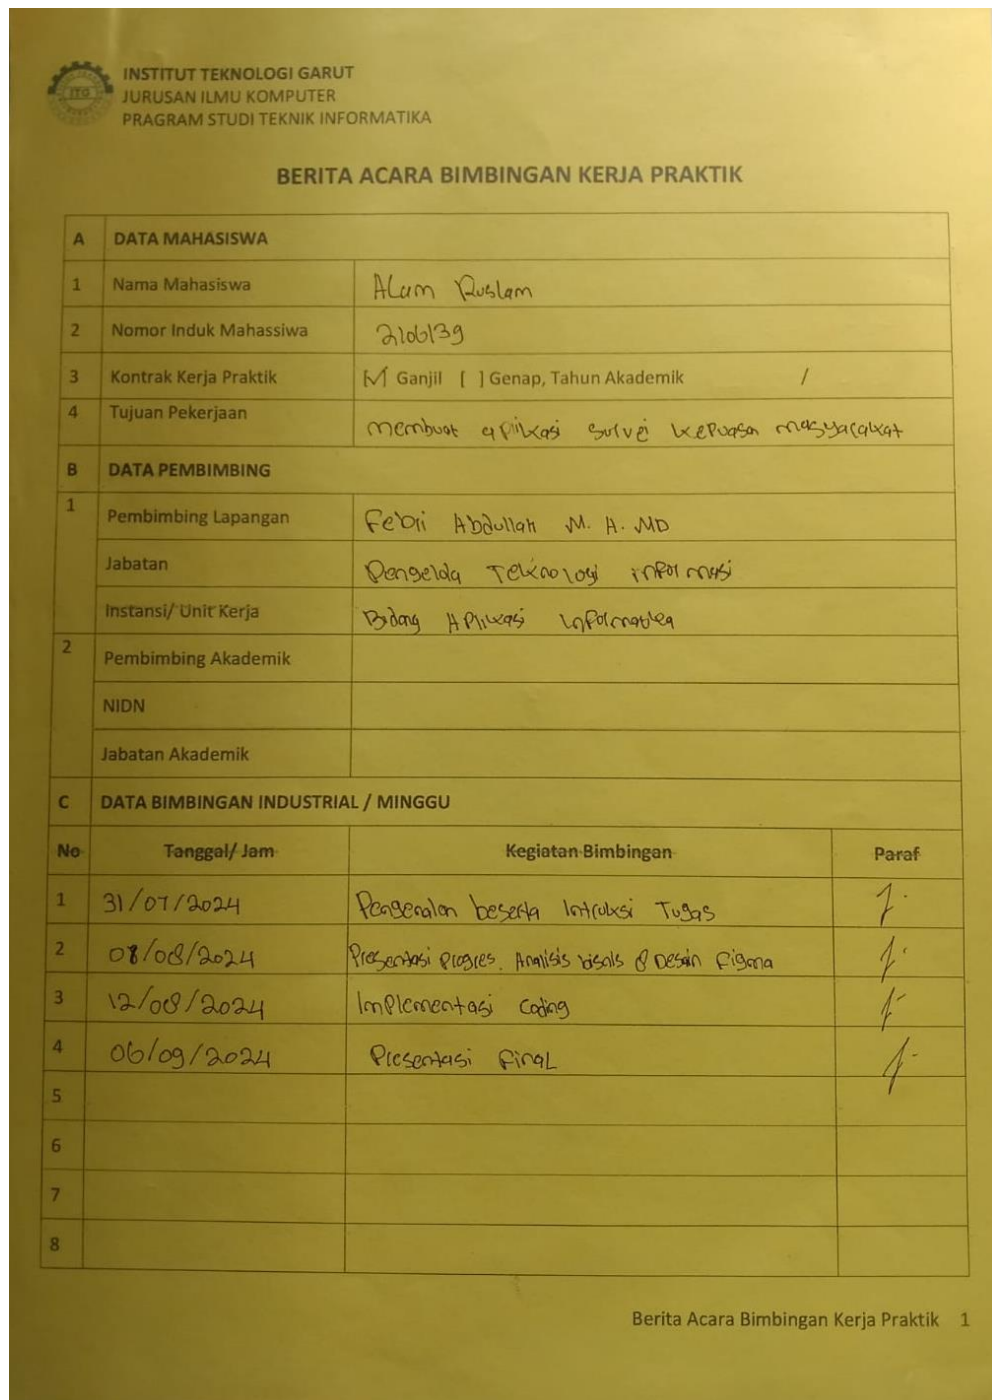 ITG
INSTITUT TEKNOLOGI GARUT
JURUSAN ILMU KOMPUTER
PRAGRAM STUDI TEKNIK INFORMATIKA
BERITA ACARA BIMBINGAN KERJA PRAKTIK
A DATA MAHASISWA
1 Nama Mahasiswa Alam Ruslam
2 Nomor Induk Mahassiwa 2106139
3 Kontrak Kerja Praktik [✓] Ganjil [ ] Genap, Tahun Akademik /
4 Tujuan Pekerjaan membuat aplikasi survei kepuasan masyarakat
B DATA PEMBIMBING
1 Pembimbing Lapangan Febri Abdullah M. A. MD
Jabatan Pengelola Teknologi informasi
Instansi/ Unit Kerja Bidang Aplikasi Informatika
2 Pembimbing Akademik
NIDN
Jabatan Akademik
C DATA BIMBINGAN INDUSTRIAL / MINGGU
No Tanggal/ Jam Kegiatan Bimbingan Paraf
1 31/07/2024 Pengenalan beserta Intruksi Tugas
2 08/08/2024 Presentasi Progres. Analisis bisnis & Desain Figma
3 12/08/2024 Implementasi Coding
4 06/09/2024 Presentasi Final
5
6
7
8
Berita Acara Bimbingan Kerja Praktik 1